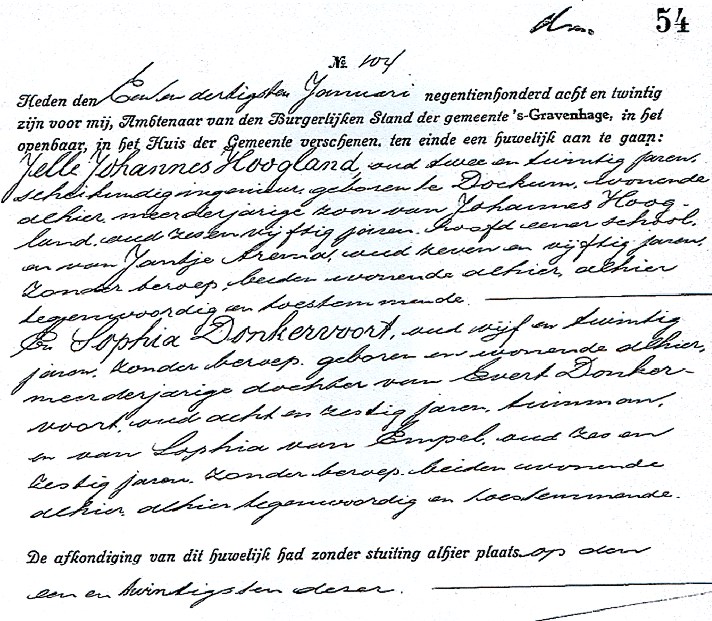 dm. 54
№ 104
Heden den Een en dertigsten Januari negentienhonderd acht en twintig
zijn voor mij, Ambtenaar van den Burgerlijken Stand der gemeente 's-Gravenhage, in het
openbaar, in het Huis der Gemeente verschenen, ten einde een huwelijk aan te gaan:
Jelle Johannes Hoogland, oud twee en twintig jaren,
scheikundig ingenieur, geboren te Dockum, wonende
alhier, meerderjarige zoon van Johannes Hoog-
land, oud zes en vijftig jaren, hoofd eener school,
en van Jantje Arema, oud zeven en vijftig jaren,
zonder beroep, beiden wonende alhier, alhier
tegenwoordig en toestemmende.
En Sophia Donkervoort, oud vijf en twintig
jaren, zonder beroep, geboren en wonende alhier,
meerderjarige dochter van Evert Donker-
voort, oud acht en zestig jaren, timman,
en van Sophia van Empel, oud zes en
zestig jaren, zonder beroep, beiden wonende
alhier, alhier tegenwoordig en toestemmende.
De afkondiging van dit huwelijk had zonder stuiting alhier plaats op den
een en twintigsten dezer.